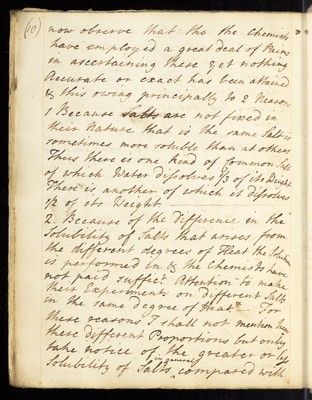 (10)
now observe that tho the Chemists
have employed a great deal of Pains
in ascertaining these yet nothing
Accurate or exact has been attained
& this owing principally to 2 Reasons
1 Because Salts are not fixed in
their Nature that is the same Salt is
sometimes more soluble than at others
Thus there is one kind of Common Salt
of which Water dissolves 1/3 of its Weight
There is another of which it dissolves
1/2 of its Weight
2. Because of the Difference in the
Solubility of Salts that arises from
the different degrees of Heat the Solution
is performed in & the Chemists have
not paid suffict. Attention to make
their Experiments on different Salts
in the same degree of Heat. For
these reasons I shall not mention
these different Proportions but only
take notice of the greater or
Solubility of Salts in general compared with